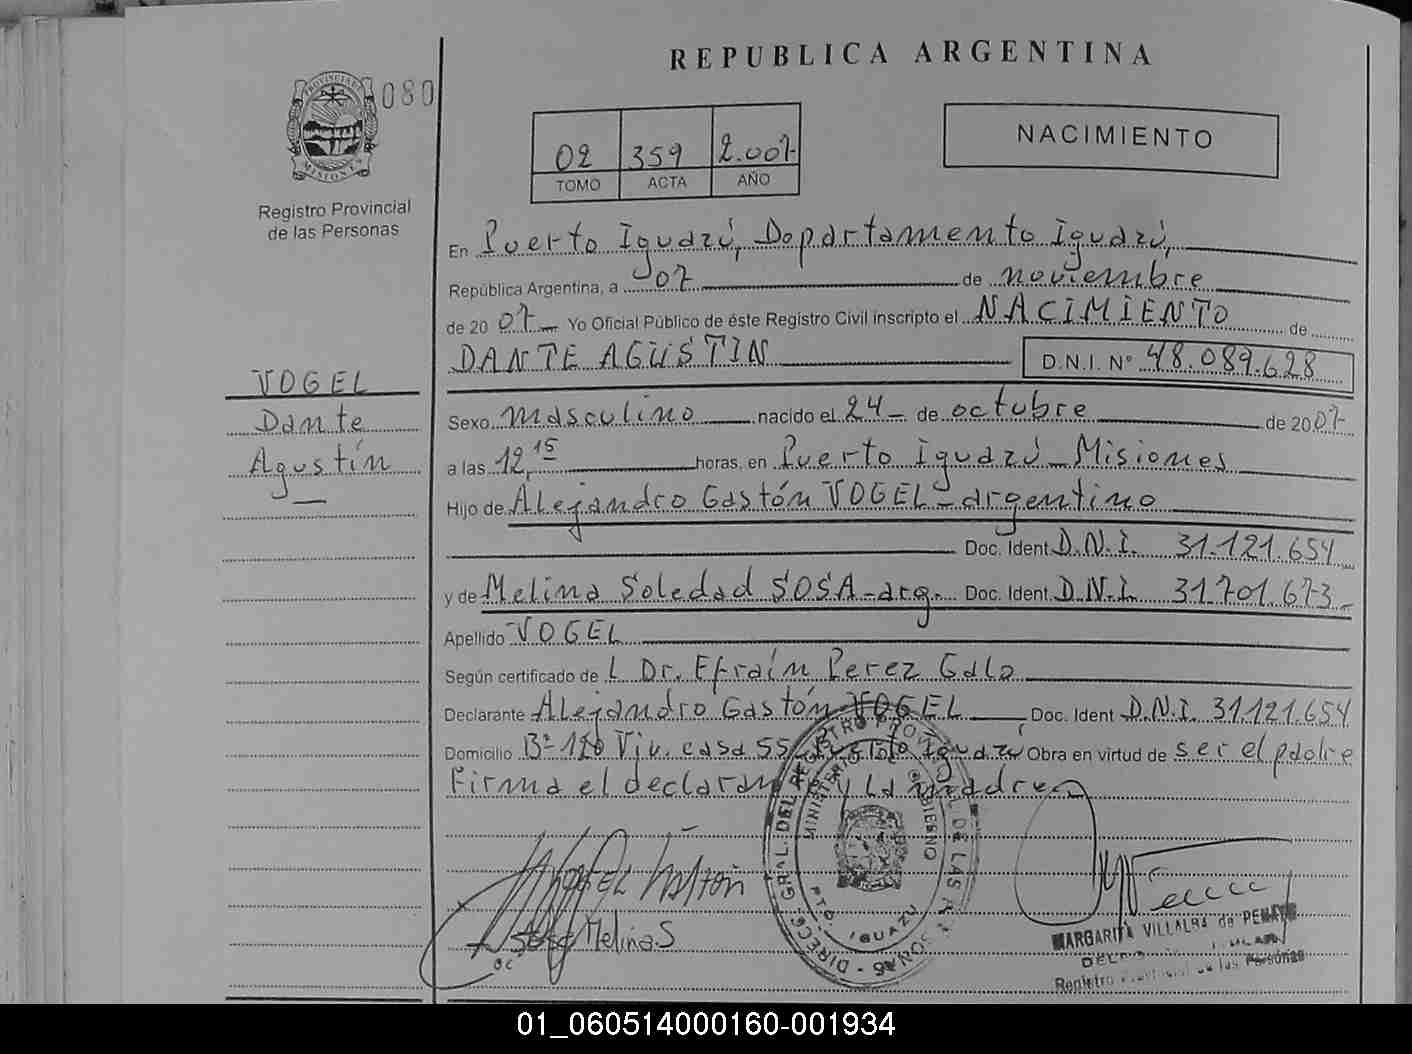 REPUBLICA ARGENTINA
080
PROVINCIA DE
MISIONES
Registro Provincial
de las Personas
02 359 2.007-
TOMO ACTA AÑO
NACIMIENTO
En Puerto Iguazú, Departamento Iguazú,
República Argentina, a 07 de noviembre
de 20 07 Yo Oficial Público de éste Registro Civil inscripto el NACIMIENTO de
DANTE AGUSTIN D.N.I. Nº 48.089.628
VOGEL
Dante
Agustín
Sexo masculino nacido el 24 de octubre de 2007
a las 12,15 horas, en Puerto Iguazú Misiones
Hijo de Alejandro Gastón VOGEL - argentino
Doc. Ident D.N.I. 31.121.654
y de Melina Soledad SOSA - arg. Doc. Ident. D.N.I. 31.701.673
Apellido VOGEL
Según certificado de L Dr. Efraín Perez Galo
Declarante Alejandro Gastón VOGEL Doc. Ident D.N.I. 31.121.654
Domicilio Bº 120 Viv. casa 55 Puerto Iguazú Obra en virtud de ser el padre
Firma el declarante y la madre
DIRECC. GRAL. DEL REGISTRO PROVINCIAL DE LAS PERSONAS
MINISTERIO DE GOBIERNO
PTO. IGUAZU
Vogel Gastón
Sosa Melina S
MARGARITA VILLALBA de
Registro Provincial de las Personas
01_060514000160-001934